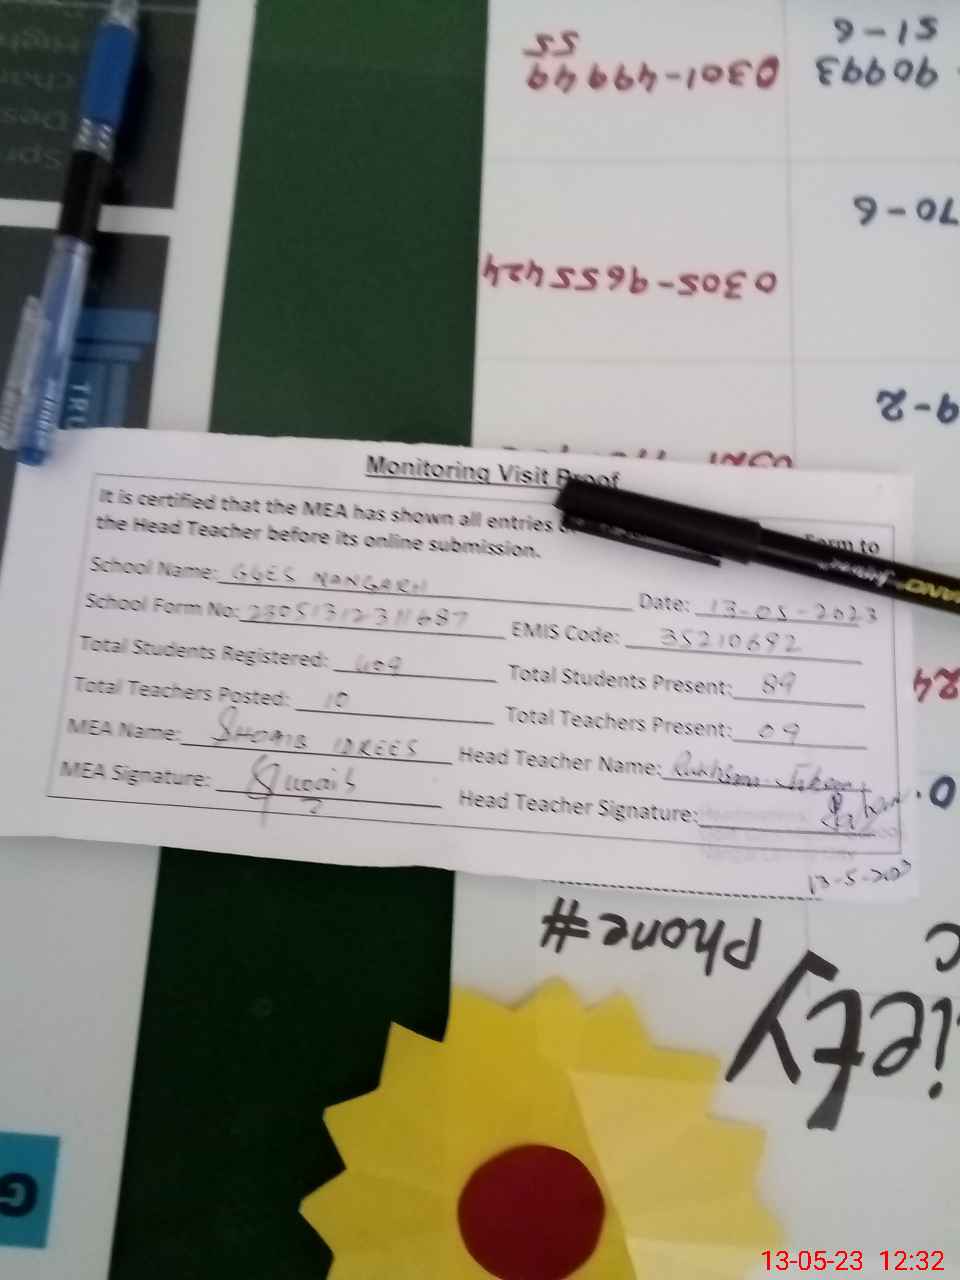 Spr
Des
Char
High
TRU
55
0301-4994449
90993
51-6
70-6
0305-9655424
9-2
Monitoring Visit Proof
It is certified that the MEA has shown all entries Form to
the Head Teacher before its online submission.
School Name: GGES NANGARH
Date: 13-05-2023
School Form No: 23051312311687
EMIS Code: 35210692
Total Students Registered: 409
Total Students Present: 89
Total Teachers Posted: 10
Total Teachers Present: 09
MEA Name: SHOAIB IDREES
Head Teacher Name:
MEA Signature: Shoaib
Head Teacher Signature:
13-5-2023
24
0
Phone #
iety
C
G
13-05-23 12:32